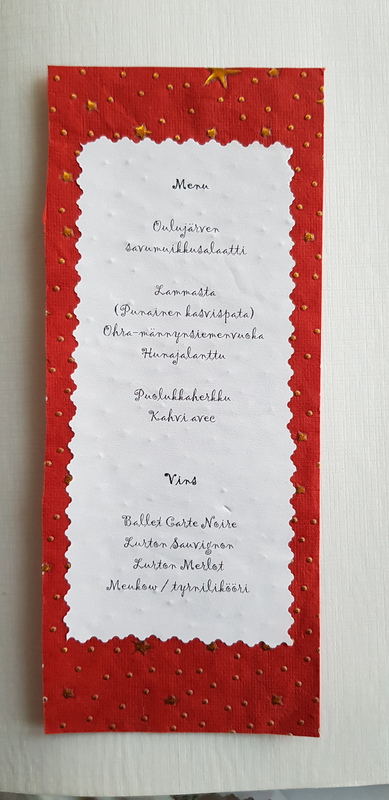 Menu
Oulujärven
savumuikkusalaatti
Lammasta
(Punainen kasvispata)
Ohra-männynsiemenvuoka
Hunajalanttu
Puolukkaherkku
Kahvi avec
Vins
Ballet Carte Noire
Lurton Sauvignon
Lurton Merlot
Meukow / tyrnilikööri